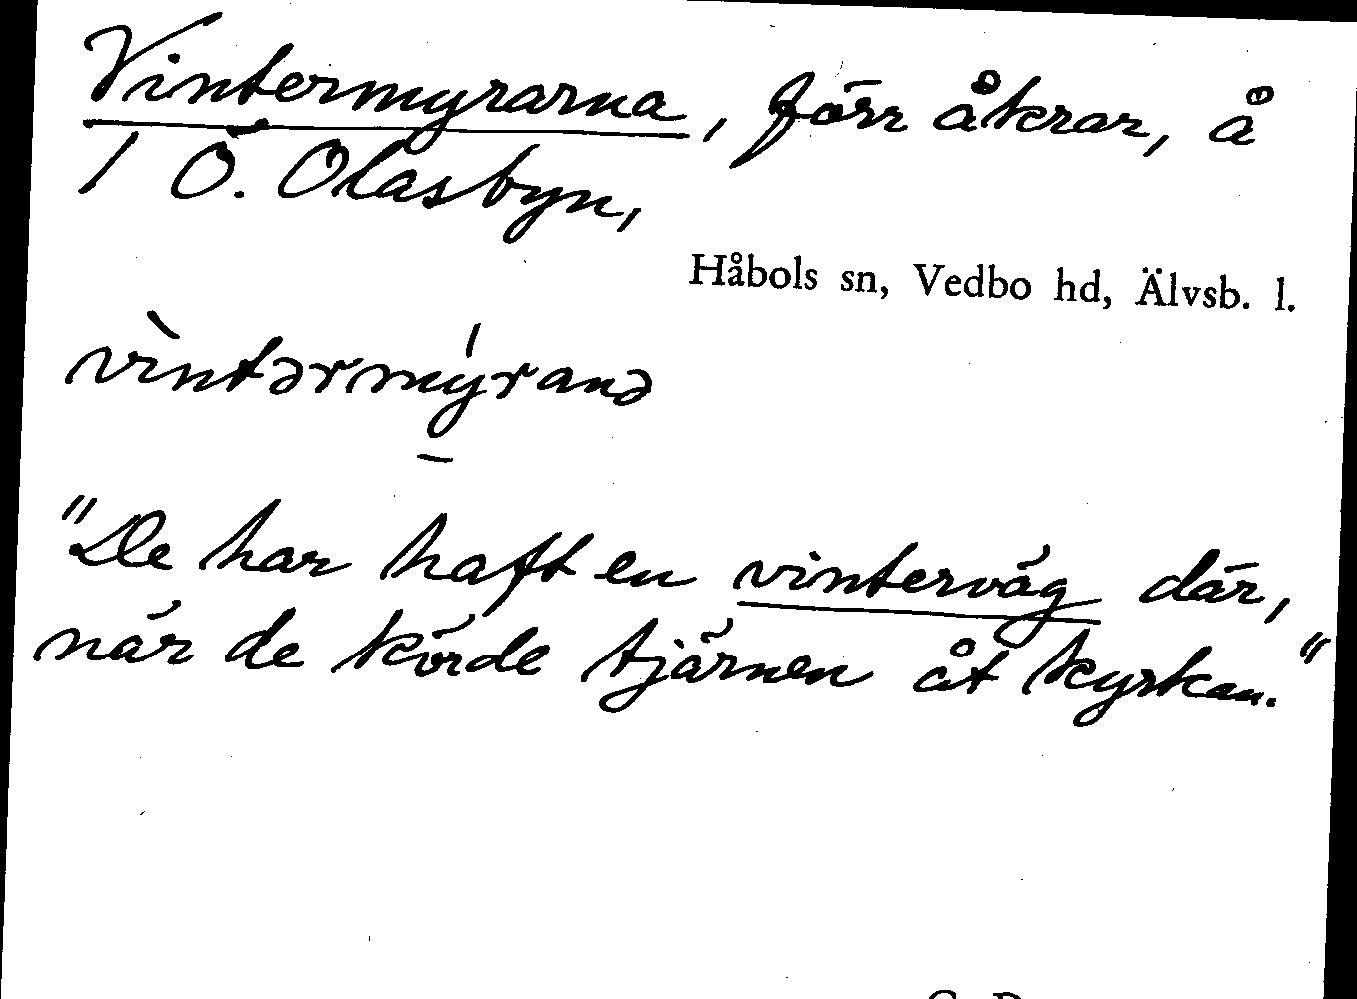 Vintermyrarna, förr åkrar, å
1 Ö. Olasbyn,
Håbols sn, Vedbo hd, Älvsb. l.
vìntərmý̱ranə
"De har haft en vinterväg där,
när de körde tjärnen åt kyrkan."